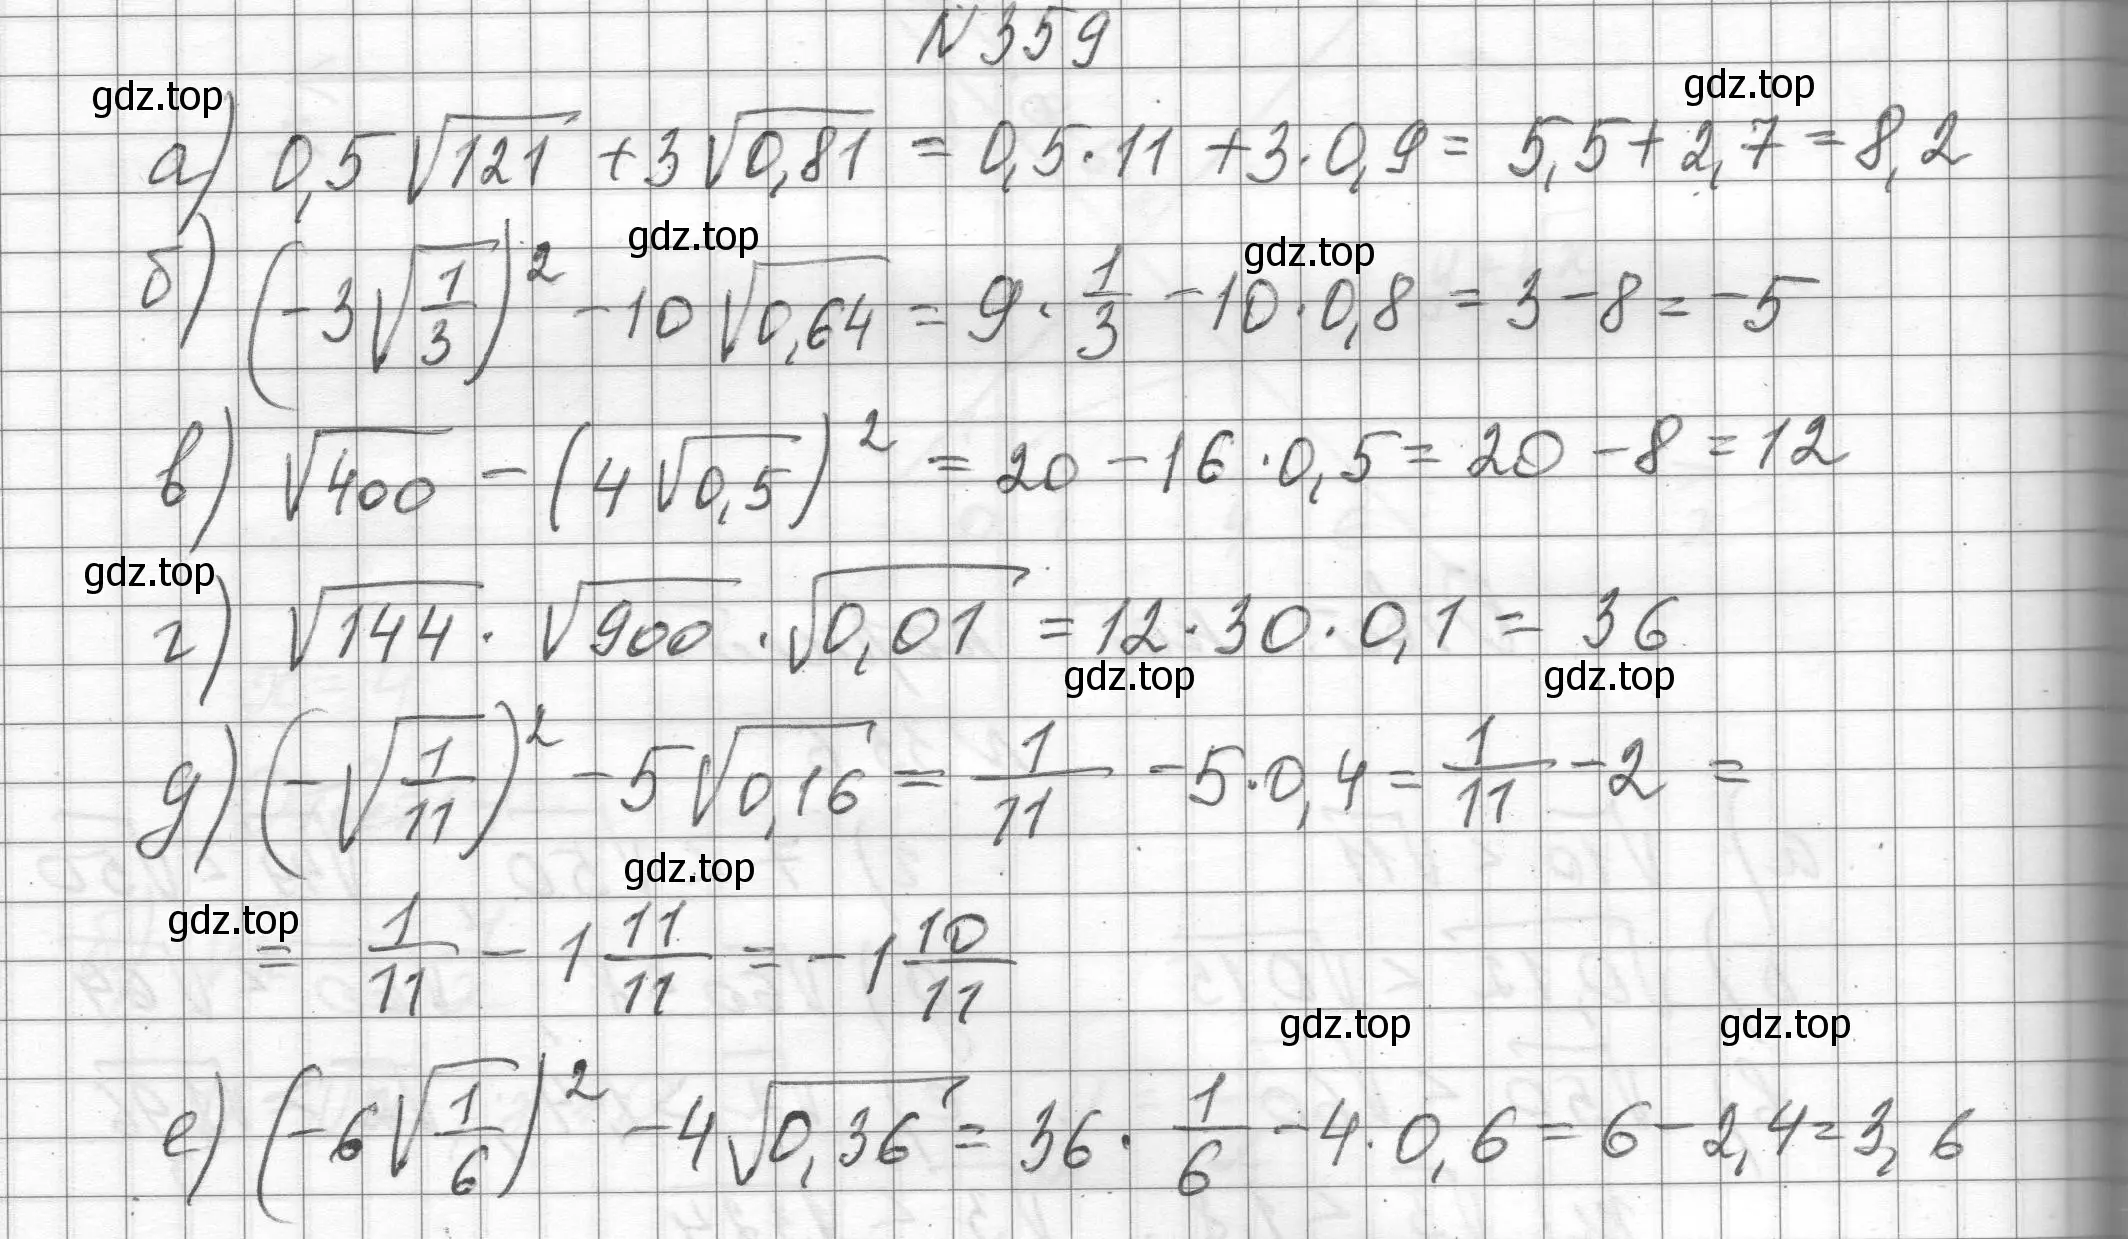 N 359
gdz.top gdz.top
а) 0,5√121 + 3√0,81 = 0,5·11 + 3·0,9 = 5,5 + 2,7 = 8,2
gdz.top gdz.top
б) (-3√(1/3))² - 10√0,64 = 9·1/3 - 10·0,8 = 3 - 8 = -5
в) √400 - (4√0,5)² = 20 - 16·0,5 = 20 - 8 = 12
gdz.top
г) √144 · √900 · √0,01 = 12·30·0,1 = 36
gdz.top gdz.top
д) (-√(1/11))² - 5√0,16 = 1/11 - 5·0,4 = 1/11 - 2 =
gdz.top gdz.top
= 1/11 - 1 11/11 = -1 10/11
gdz.top gdz.top
е) (-6√(1/6))² - 4√0,36 = 36·1/6 - 4·0,6 = 6 - 2,4 = 3,6